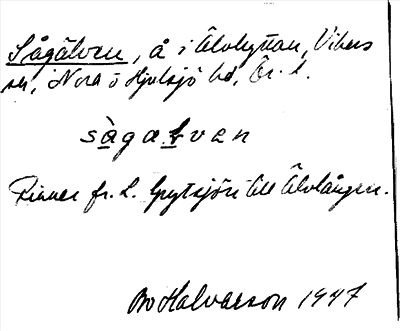 Sågälven, å i Älvhyttan, Vikers
sn, Nora o Hjulsjö bd, Ör. l.
sågalven
Rinner fr. L. Grytsjön till Älvlången.
Bo Halvarson 1947